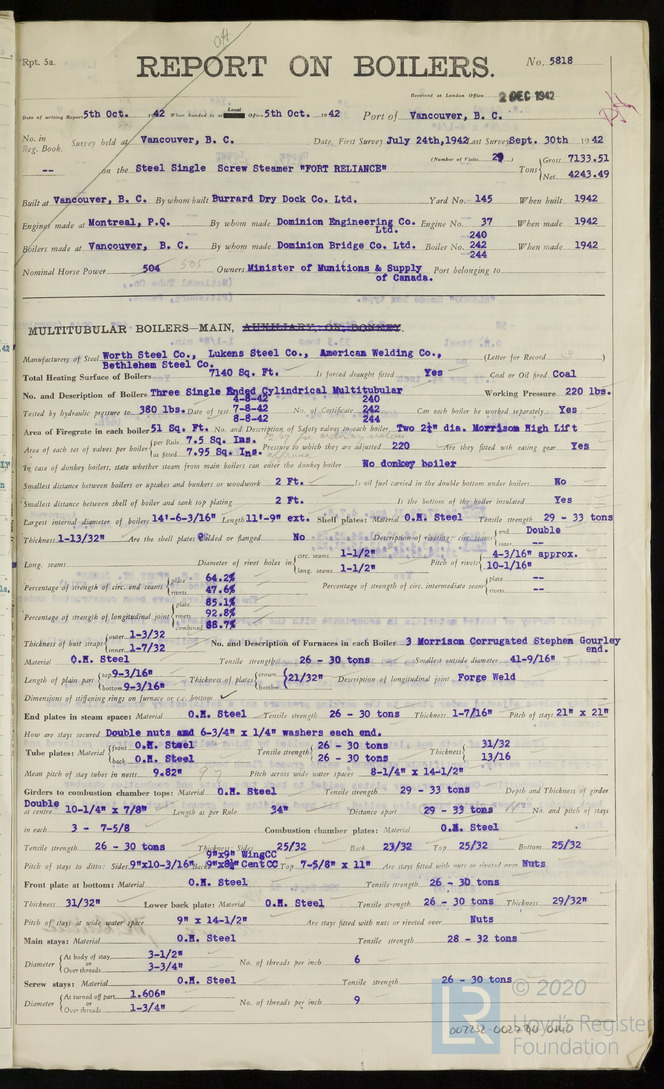 off
Rpt. 5a.
REPORT ON BOILERS.
No. 5818
Received at London Office 2 DEC 1942
Date of writing Report 5th Oct. 1942 When handed in at Local Office 5th Oct. 1942 Port of Vancouver, B. C.
No. in Reg. Book. Survey held at Vancouver, B. C. Date, First Survey July 24th, 1942 Last Survey Sept. 30th 1942
(Number of Visits 29)
-- on the Steel Single Screw Steamer "FORT RELIANCE" Tons { Gross 7133.51 Net 4243.49
Built at Vancouver, B. C. By whom built Burrard Dry Dock Co. Ltd. Yard No. 145 When built 1942
Engines made at Montreal, P.Q. By whom made Dominion Engineering Co. Ltd. Engine No. 37 When made 1942
Boilers made at Vancouver, B. C. By whom made Dominion Bridge Co. Ltd. Boiler No. 240 242 244 When made 1942
Nominal Horse Power 504 505 Owners Minister of Munitions & Supply of Canada. Port belonging to
MULTITUBULAR BOILERS—MAIN, AUXILIARY, OR DONKEY.
Manufacturers of Steel Worth Steel Co., Lukens Steel Co., American Welding Co., Bethlehem Steel Co. (Letter for Record S)
Total Heating Surface of Boilers 7140 Sq. Ft. Is forced draught fitted Yes Coal or Oil fired Coal
No. and Description of Boilers Three Single Ended Cylindrical Multitubular Working Pressure 220 lbs.
Tested by hydraulic pressure to 380 lbs. Date of test 4-8-42 7-8-42 8-8-42 No. of Certificate 240 242 244 Can each boiler be worked separately Yes
Area of Firegrate in each boiler 51 Sq. Ft. No. and Description of Safety valves to each boiler Two 2½" dia. Morrison High Lift
Area of each set of valves per boiler { per Rule 7.5 Sq. Ins. as fitted 7.95 Sq. Ins. Pressure to which they are adjusted 220 Are they fitted with easing gear Yes
In case of donkey boilers, state whether steam from main boilers can enter the donkey boiler No donkey boiler
Smallest distance between boilers or uptakes and bunkers or woodwork 2 Ft. Is oil fuel carried in the double bottom under boilers No
Smallest distance between shell of boiler and tank top plating 2 Ft. Is the bottom of the boiler insulated Yes
Largest internal diameter of boilers 14'-6-3/16" Length 11'-9" ext. Shell plates: Material O.H. Steel Tensile strength 29 - 33 tons
Thickness 1-13/32" Are the shell plates welded or flanged No Description of riveting: circ. seams { end Double inter. --
Long. seams Diameter of rivet holes in { circ. seams 1-1/2" long. seams 1-1/2" Pitch of rivets { 4-3/16" approx. 10-1/16"
Percentage of strength of circ. end seams { plate 64.2% rivets 47.6% Percentage of strength of circ. intermediate seam { plate -- rivets --
Percentage of strength of longitudinal joint { plate 85.1% rivets 92.8% combined 88.7%
Thickness of butt straps { outer 1-3/32 inner 1-7/32 No. and Description of Furnaces in each Boiler 3 Morrison Corrugated Stephen Gourley end.
Material O.H. Steel Tensile strength 26 - 30 tons Smallest outside diameter 41-9/16"
Length of plain part { top 9-3/16" bottom 9-3/16" Thickness of plates { crown bottom } 21/32" Description of longitudinal joint Forge Weld
Dimensions of stiffening rings on furnace or c.c. bottom ✓
End plates in steam space: Material O.H. Steel Tensile strength 26 - 30 tons Thickness 1-7/16" Pitch of stays 21" x 21"
How are stays secured Double nuts and 6-3/4" x 1/4" washers each end.
Tube plates: Material { front O.H. Steel back O.H. Steel Tensile strength { 26 - 30 tons 26 - 30 tons Thickness { 31/32 13/16
Mean pitch of stay tubes in nests 9.82" Pitch across wide water spaces 8-1/4" x 14-1/2"
Girders to combustion chamber tops: Material O.H. Steel Tensile strength 29 - 33 tons Depth and Thickness of girder
at centre Double 10-1/4" x 7/8" Length as per Rule 34" Distance apart 29 - 33 tons No. and pitch of stays
in each 3 - 7-5/8 Combustion chamber plates: Material O.H. Steel
Tensile strength 26 - 30 tons Thickness: Sides 25/32 Back 23/32 Top 25/32 Bottom 25/32
Pitch of stays to ditto: Sides 9"x10-3/16" Back 9"x9" WingCC 9"x8½" CentCC Top 7-5/8" x 11" Are stays fitted with nuts or riveted over Nuts
Front plate at bottom: Material O.H. Steel Tensile strength 26 - 30 tons
Thickness 31/32" Lower back plate: Material O.H. Steel Tensile strength 26 - 30 tons Thickness 29/32"
Pitch of stays at wide water space 9" x 14-1/2" Are stays fitted with nuts or riveted over Nuts
Main stays: Material O.H. Steel Tensile strength 28 - 32 tons
Diameter { At body of stay, 3-1/2" or Over threads 3-3/4" No. of threads per inch 6
Screw stays: Material O.H. Steel Tensile strength 26 - 30 tons
Diameter { At turned off part, 1.606" or Over threads 1-3/4" No. of threads per inch 9
© 2020
LR Lloyd's Register Foundation
002232-002240-0140